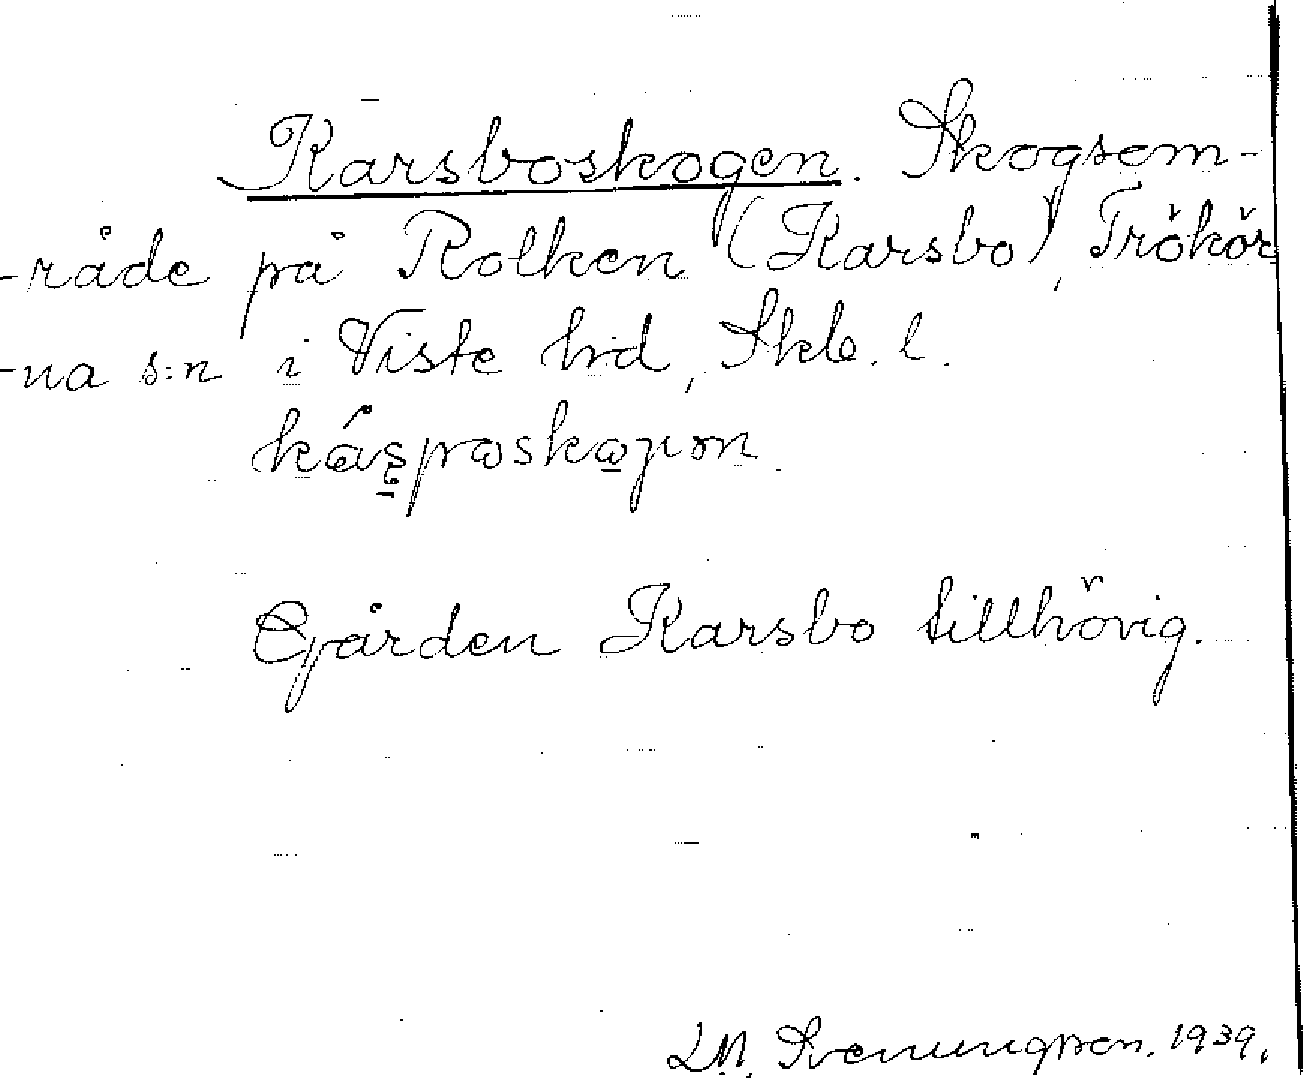 Karsboskogen. Skogsom-
-råde på Rolken (Karsbo), Trökör
-na s:n i Viste hd, Skb. l.

Gården Karsbo tillhörig.
L.M. Svenungsson. 1939.